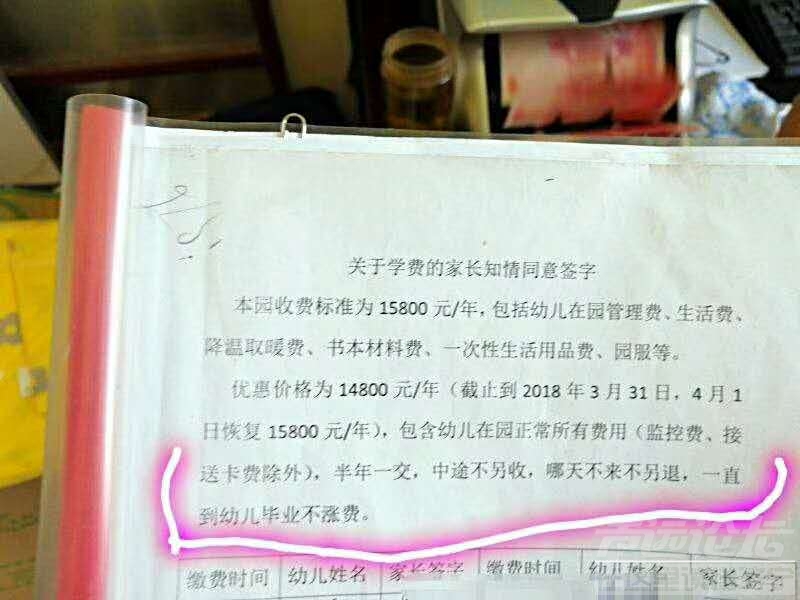 关于学费的家长知情同意签字
本园收费标准为 15800 元/年，包括幼儿在园管理费、生活费、
降温取暖费、书本材料费、一次性生活用品费、园服等。
优惠价格为 14800 元/年（截止到 2018 年 3 月 31 日，4 月 1
日恢复 15800 元/年），包含幼儿在园正常所有费用（监控费、接
送卡费除外），半年一交，中途不另收，哪天不来不另退，一直
到幼儿毕业不涨费。
缴费时间 幼儿姓名 家长签字 缴费时间 幼儿姓名 家长签字